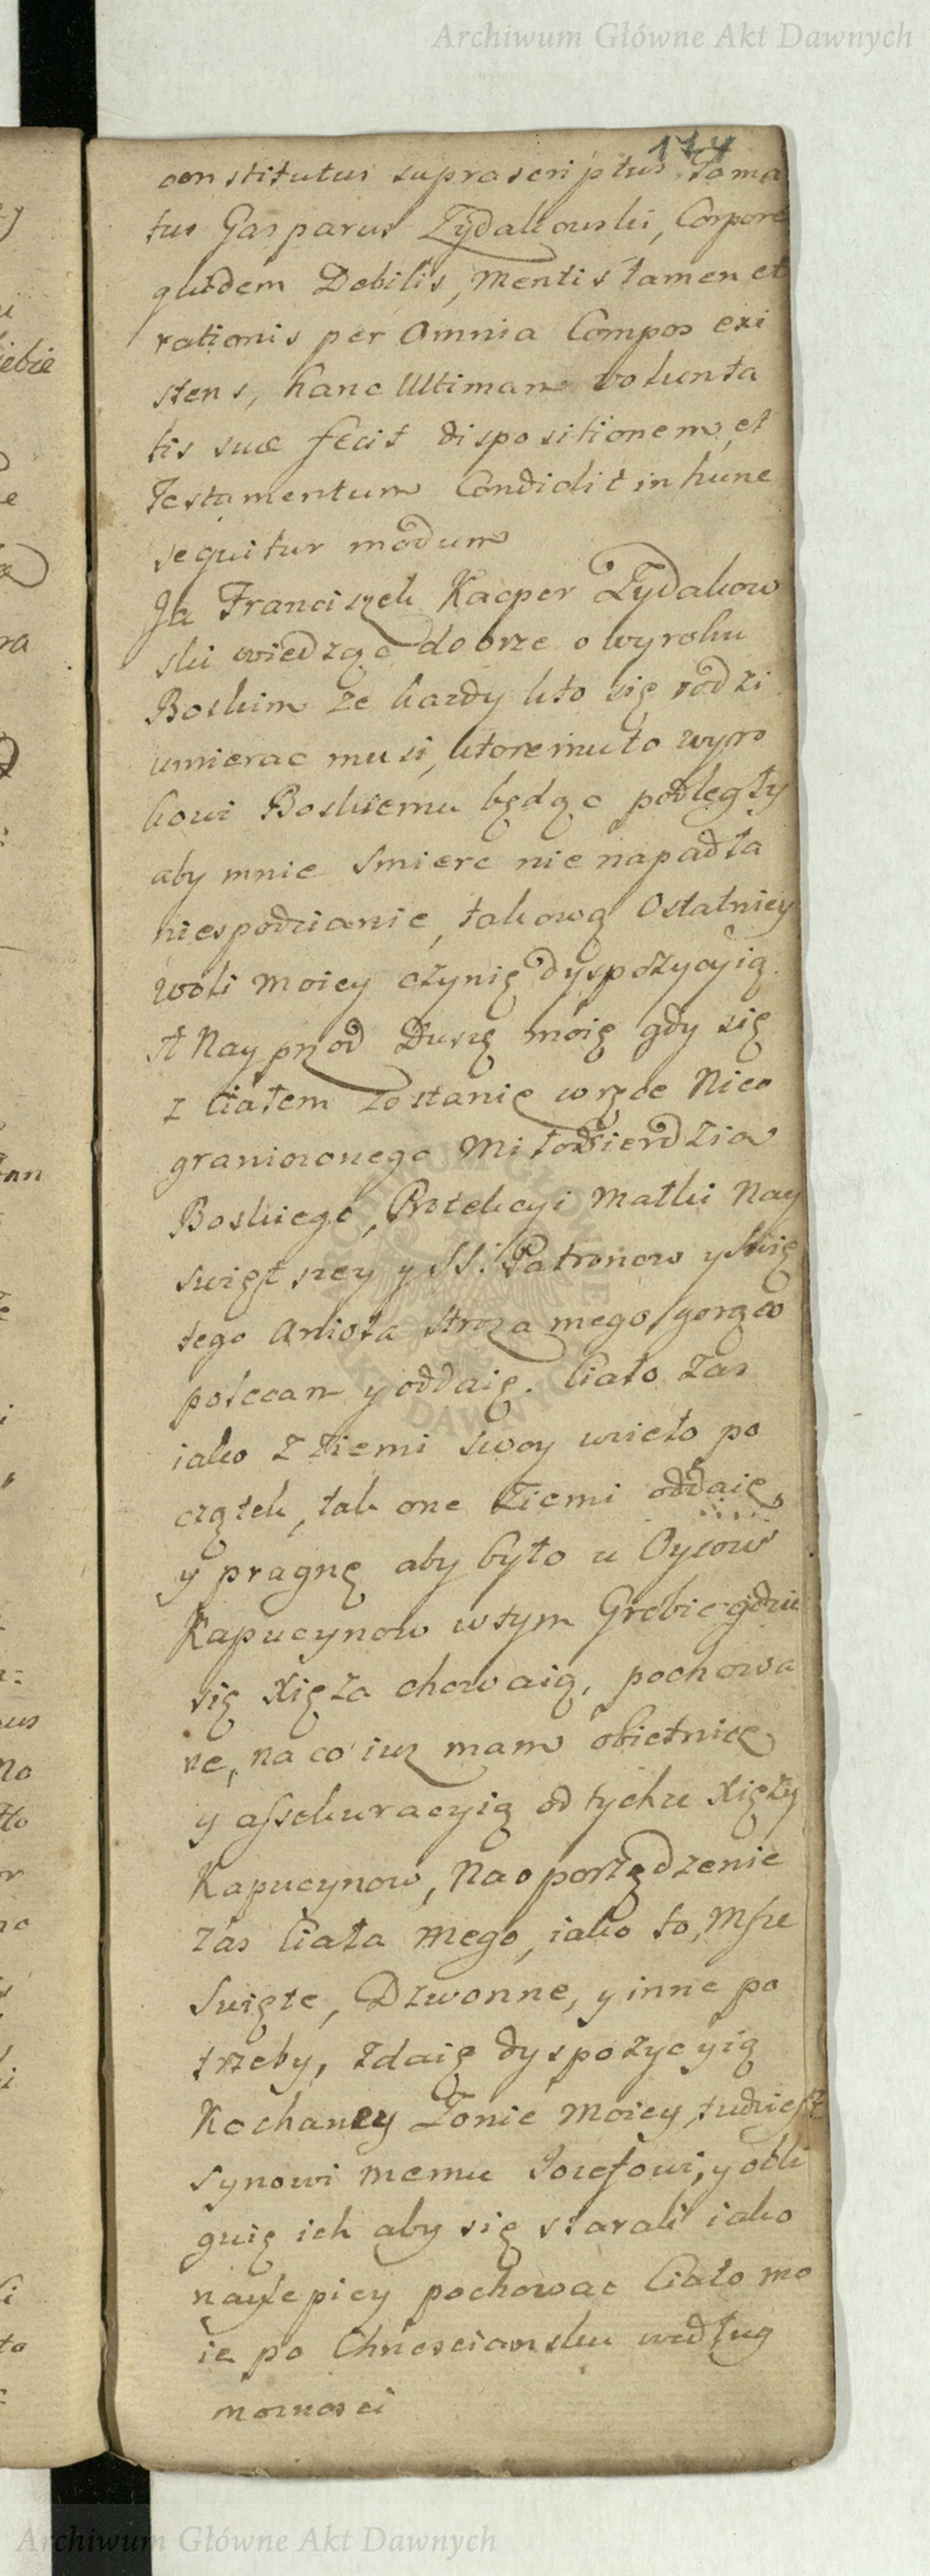 Archiwum Główne Akt Dawnych
174
constitutus suprascriptus Fama
tus Gasparus Zydakowski, Corpore
quidem Debilis, Mentis tamen et
rationis per Omnia Compos exi
stens, hanc Ultimam volunta
tis suæ fecit dispositionem et
Testamentum Condidit in hunc
sequitur modum
Ja Franciszek Kacper Zydakow
ski wiedząc dobrze o wyroku
Boskim ze kazdy kto się rodzi
umierac musi, ktoremu to wyro
kowi Boskiemu będąc podległy
aby mnie smierc nie napadła
niespodzianie, takową Ostatniey
woli moiey czynię dyspozycyią
A Nayprzod Duszę moię gdy się
z Ciałem zostanie w ręce Nieo
graniczonego Miłosierdzia
Boskiego, Protekcyi Matki Nay
swiętszey y SS. Patronow y Swię
tego Anioła Stroza mego gorąco
polecam y oddaię. Ciało zas
iako z Ziemi swoy wzieło po
czątek, tak one Ziemi oddaię,
y pragnę aby było u Oycow
Kapucynow w tym Grobie gdzie
się Xięza chowaią, pochowa
ne, na co iuz mam obietnicę
y assekuracyią od tychze Xięzy
Kapucynow, Na oporządzenie
zas Ciała mego, iako to, Msze
Swięte, Dzwonne, y inne po
trzeby, zdaię dyspozycyią
Kochaney Zonie moiey, tudziesz
synowi memu Jozefowi, y obli
guię ich aby się starali iako
naylepiey pochowac Ciało mo
ie po Chrzesciansku według
moznosci
Archiwum Główne Akt Dawnych